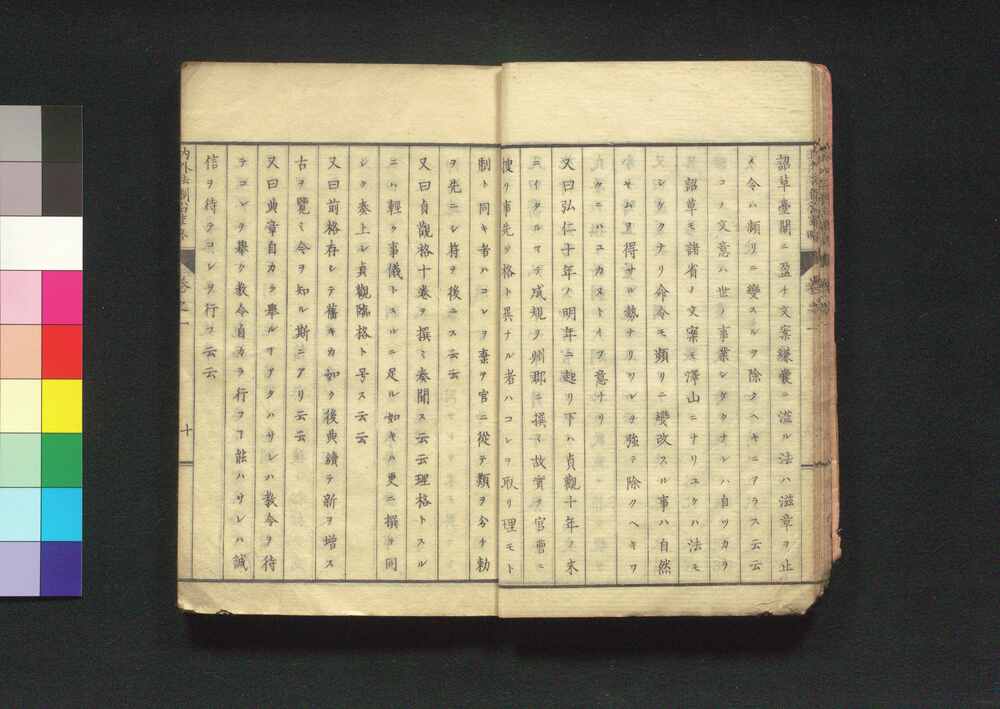 詔草臺閣ニ盈チ文案縑嚢ニ溢ル法ハ滋章ヲ止
メ令ハ頻リニ變スルヲ除クヘキニアラス云云
コノ文意ハ世ノ事業シタカナレハ自ツカラ
詔草モ諸省ノ文案モ澤山ニナリユケハ法モ
シケクナリ命令モ頻リニ變改スル事ハ自然
ヤムヲ得サル勢ナリソレヲ強テ除クヘキワ
ケニハユカストイフ意ナリ
又曰弘仁十年ノ明年ニ起リ下ハ貞觀十年ノ末
ニイタルマテ成規ヲ州郡ニ撰ミ故實ヲ官曹ニ
搜リ事先ノ格ト異ナル者ハコレヲ取リ理モト
制ト同キ者ハコレヲ棄ヲ官ニ從テ類ヲ分チ勅
ヲ先ニシ符ヲ後ニス云云
又曰貞觀格十卷ヲ撰ミ奏聞ス云云理格トスル
ニハ輕ク事儀トスルニ足ル如キハ更ニ撰ヲ同
シク奏上シ貞觀臨格ト号ス云云
又曰前格存シテ舊キカ如ク後典續テ新ヲ增ス
古ヲ覽ミ令ヲ知ル斯ニアリ云云
又曰典章自カラ擧ルマアタハサレハ教令ヲ待
テコレヲ擧ク教令自カラ行フコ能ハサレハ誠
信ヲ待テコレヲ行フ云云
卷之一
十